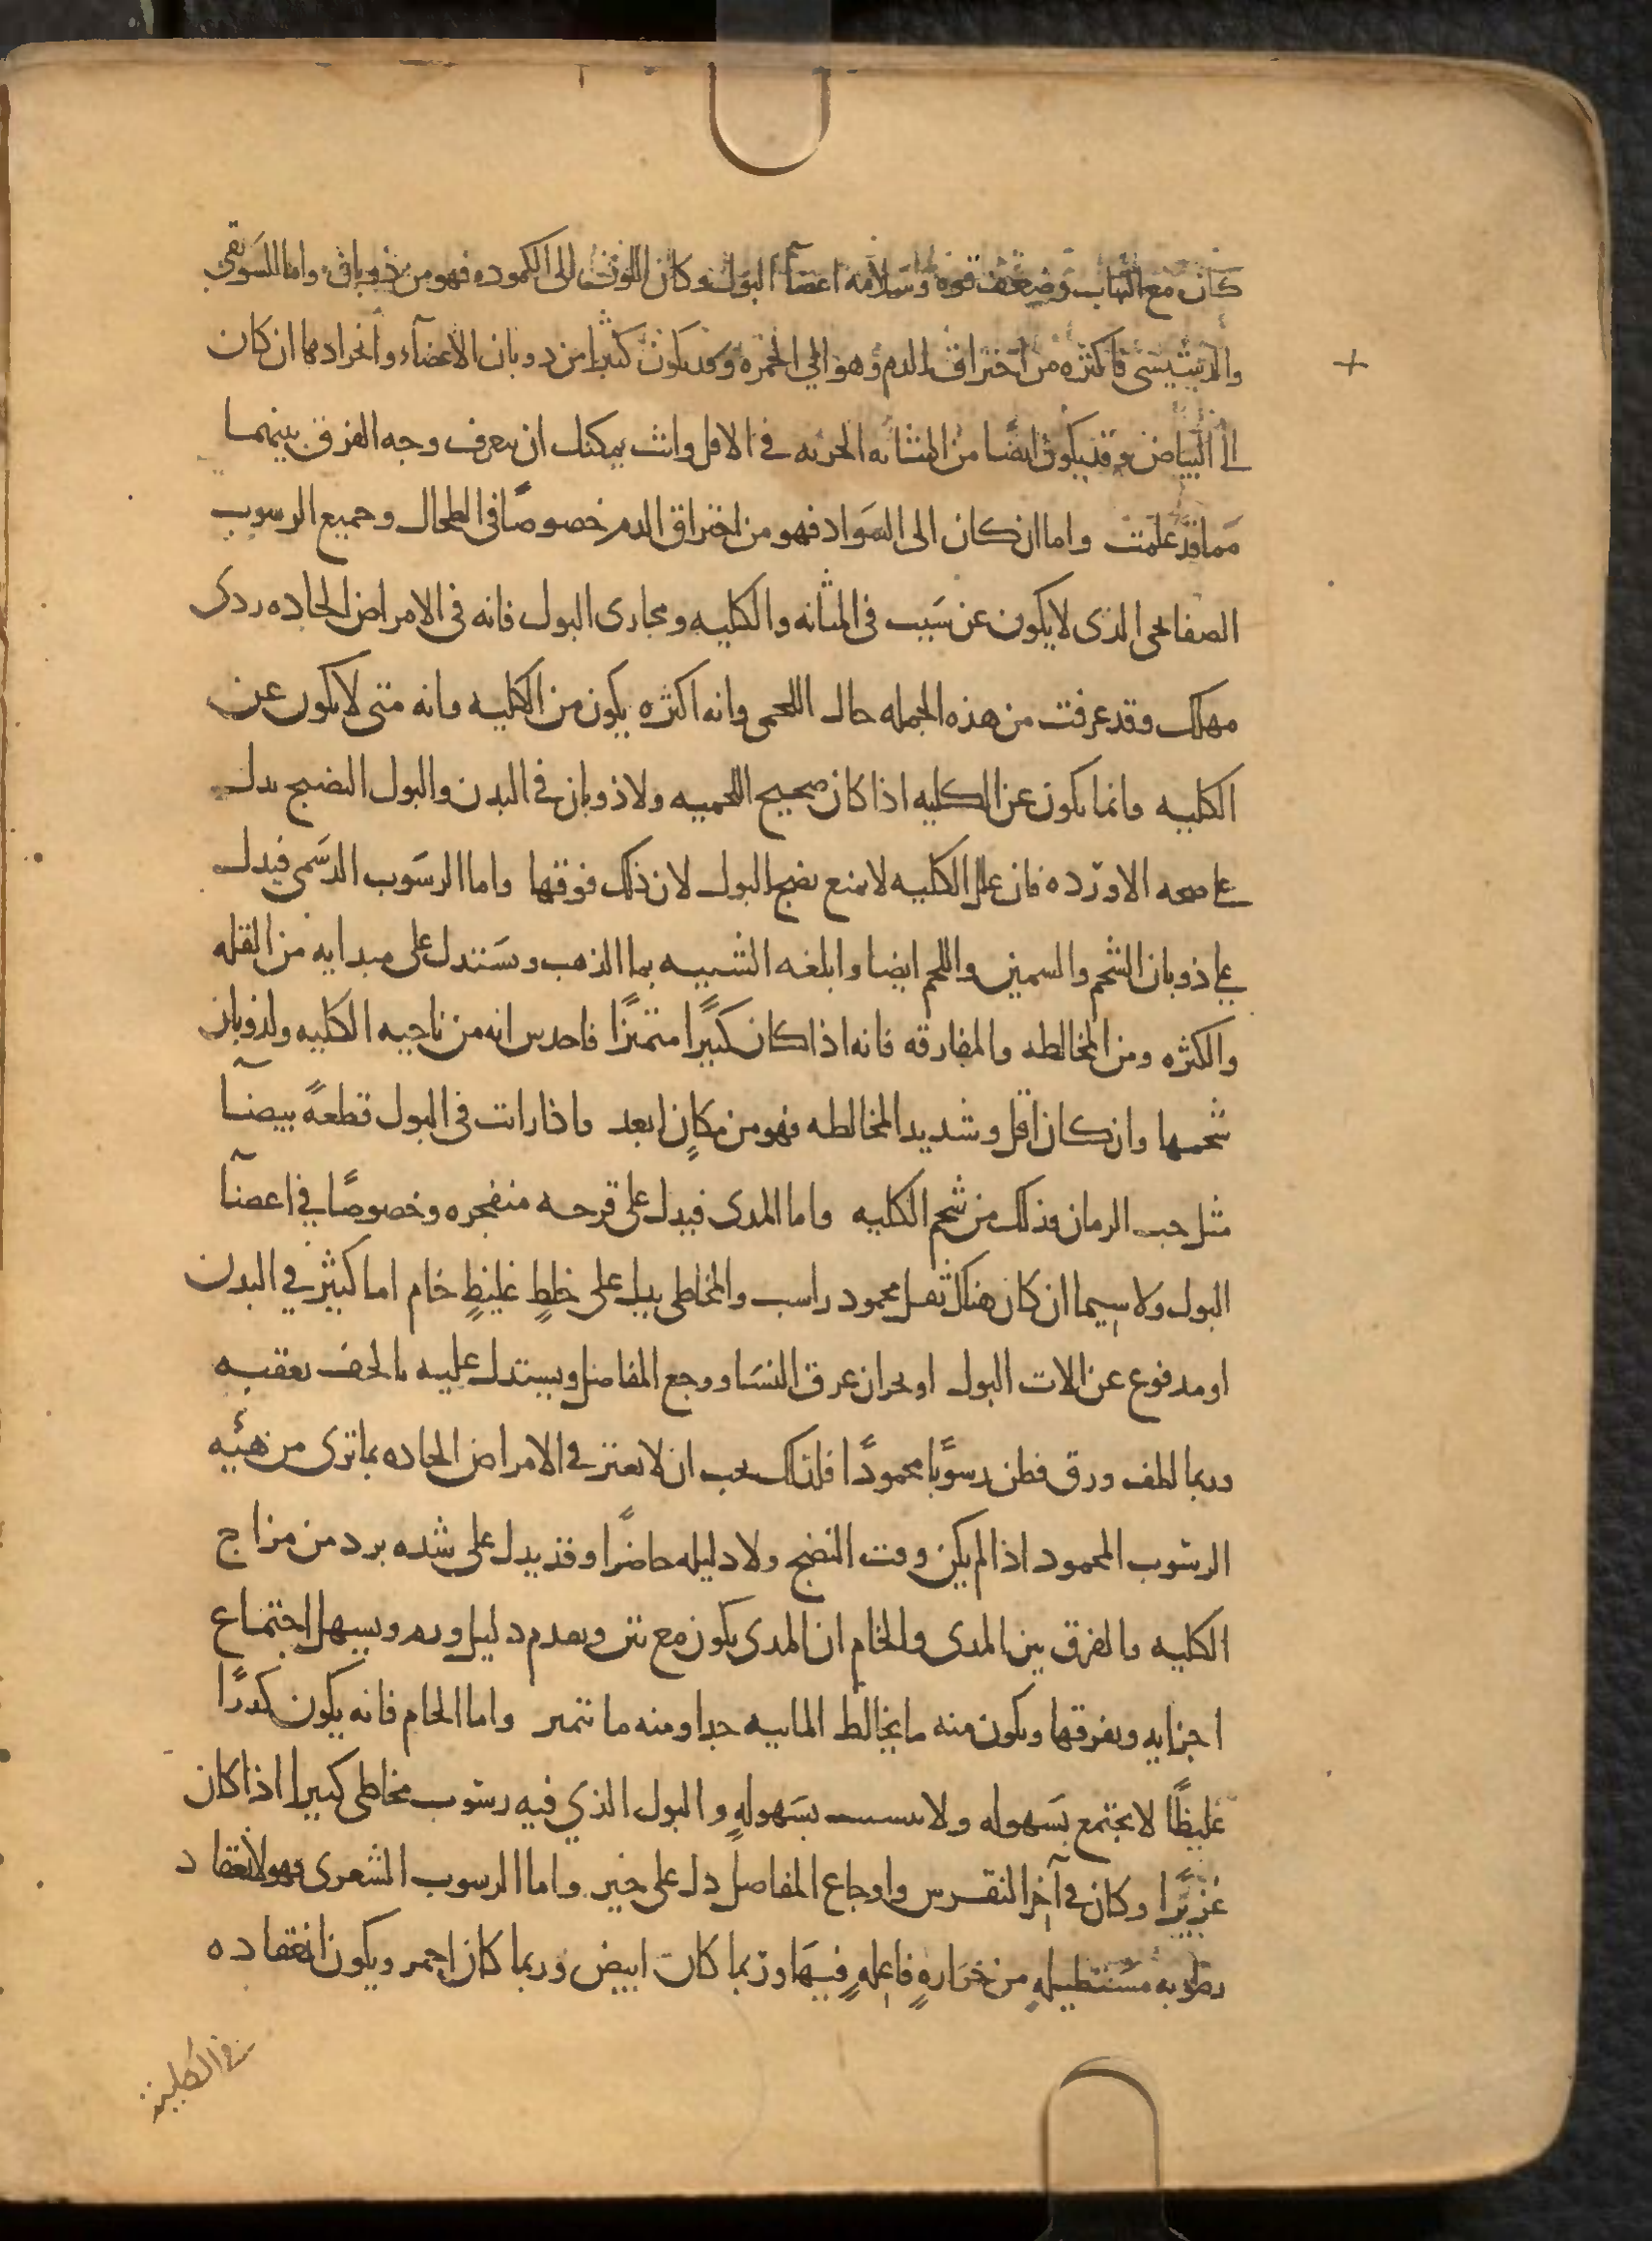 كان مع التهاب وضعف قوه وسلامه اعضآ البول وكان اللون الى الكموده فهو من ذوبان واما السويقى
والدشيشى فاكثره من احتراق الدم وهو الي الحمره وقد يكون كثيرا من ذوبان الاعضآء وانجرادها ان كان
الى البياض وقد يكون ايضا من المثانه الجربه في الاقل وانت يمكنك ان تعرف وجه الفرق بينهما
مما قد علمت واما ان كان الى السواد فهو من احتراق الدم خصوصًا فى الطحال وجميع الرسوب
الصفائحى الذى لا يكون عن سبب فى المثانه والكليه ومجارى البول فانه فى الامراض الحاده ردى
مهلك وقد عرفت من هذه الجمله حال اللحمى وانه اكثره يكون من الكليه وانه متى لا يكون عن
الكليه وانما يكون عن الكليه اذا كان صحيح اللحميه ولا ذوبان في البدن والبول النضيج يدل
على صحه الاورده فان علل الكليه لا تمنع نضج البول لان ذلك فوقها واما الرسوب الدسمى فيدل
على ذوبان الشحم والسمين واللحم ايضا وابلغه الشبيه بما الذهب ويستدل على مبدايه من القله
والكثره ومن المخالطه والمفارقه فانه اذا كان كبيرًا متميزًا فاحدس انه من ناحيه الكليه ولذوبان
شحمها وان كان اقل وشديد المخالطه فهو من مكانٍ ابعد واذا رايت فى البول قطعهً بيضآ
مثل حب الرمان فذلك من شحم الكليه واما المدى فيدل على قرحه منفجره وخصوصًا في اعضآ
البول ولا سيما ان كان هناك ثفل محمود راسب والمخاطى يدل على خلطٍ غليظٍ خام اما كثير في البدن
او مدفوع عن الات البول او بحران عرق النسَا ووجع المفاصل ويستدل عليه بالخف يعقبه
وربما لطف ورق فظن رسوبًا محمودًا فلذلك يجب ان لا تغتر فى الامراض الحاده بما ترى من هيئه
الرسوب المحمود اذا لم يكن وقت النضج ولا دليله حاضرًا وقد يدل على شده برد من مزاج
الكليه والفرق بين المدى والخام ان المدى يكون مع نتن وتقدم دليل ورم ويسهل اجتماع
اجزايه وتفرقها ويكون منه ما يخالط الماييه جدا ومنه ما يتميز واما الخام فانه يكون كدرًا
غليظًا لا يجتمع بسهوله ولا يتشتت بسهولهٍ والبول الذي فيه رسوب مخاطى كبيرا اذا كان
غزيرًا وكان في آخر النقرس واوجاع المفاصل دل على خير واما الرسوب الشعرى فهو لانعقاد
رطوبه مستطيلهٍ من حرارهٍ فاعلهٍ فيها وربما كان ابيض وربما كان احمر ويكون انعقاده
فى الكلية